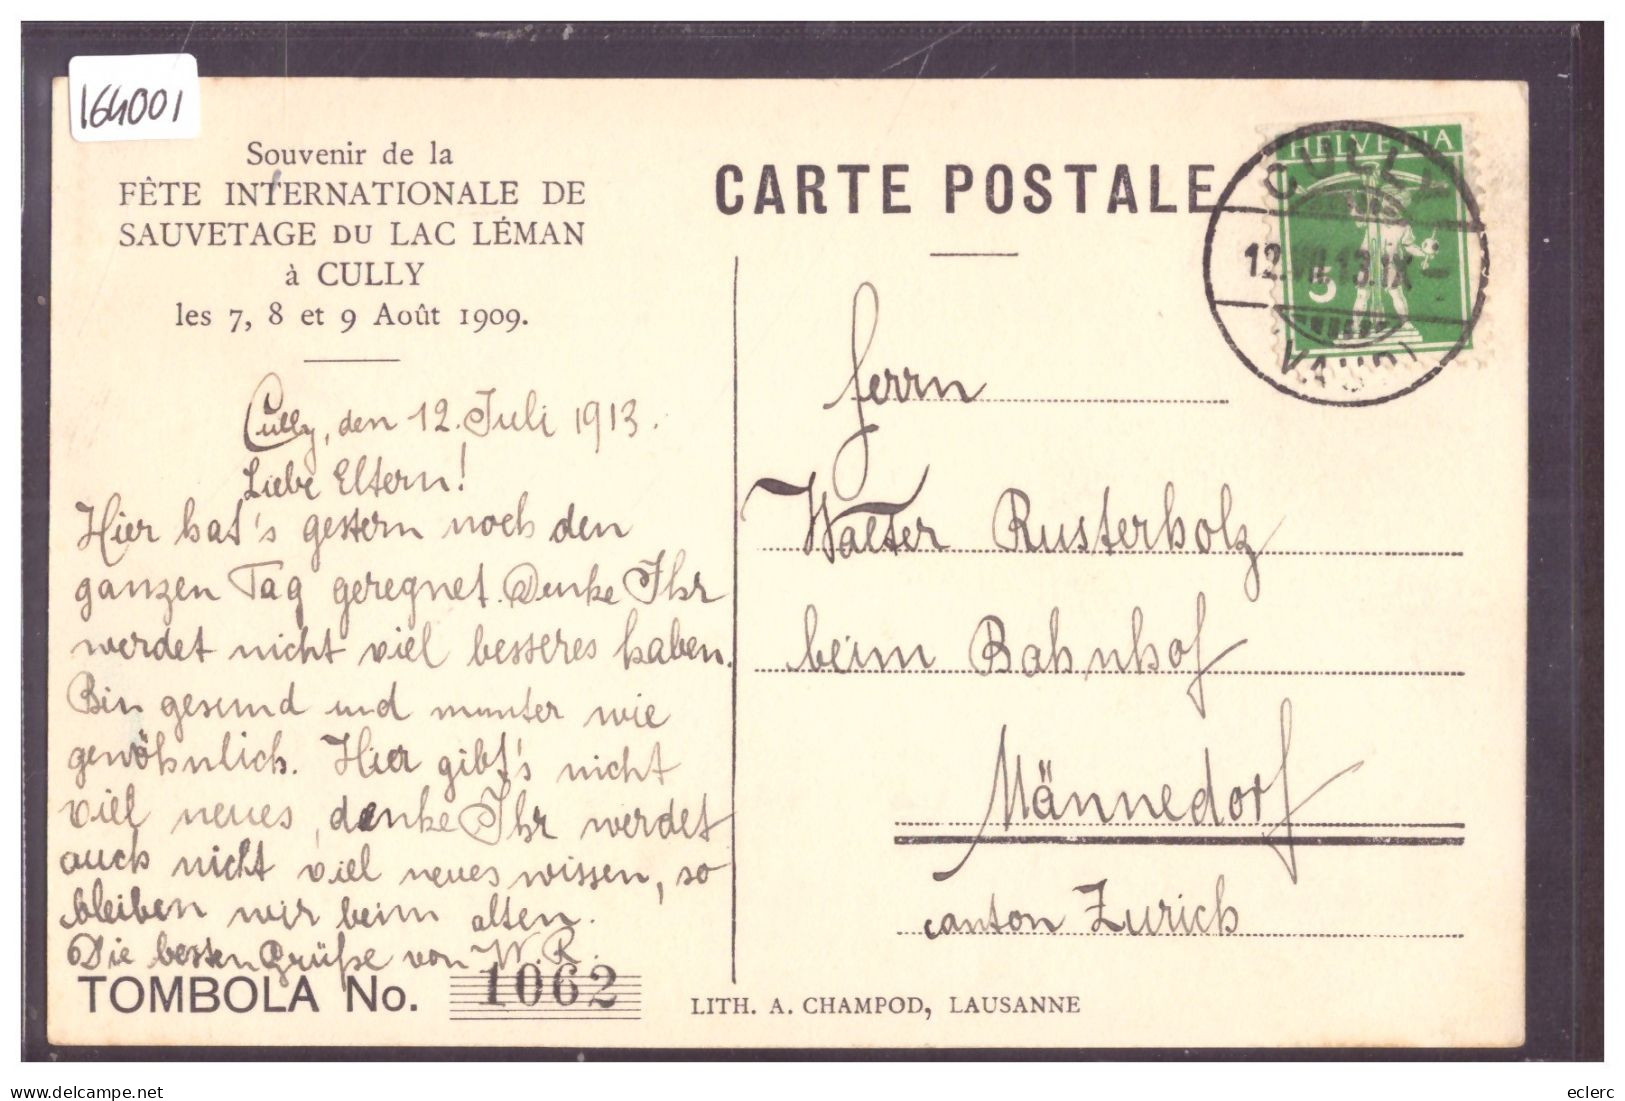 164001
Souvenir de la
FÊTE INTERNATIONALE DE
SAUVETAGE DU LAC LÉMAN
à CULLY
les 7, 8 et 9 Août 1909.
CARTE POSTALE
HELVETIA
5
CULLY
12.VII.13.IX-
VAUD
Cully, den 12. Juli 1913.
Liebe Eltern!
Hier hat's gestern noch den
ganzen Tag geregnet. Denke Ihr
werdet nicht viel besseres haben.
Bin gesund und munter wie
gewöhnlich. Hier gibt's nicht
viel neues, denke Ihr werdet
auch nicht viel neues wissen, so
bleiben wir beim alten.
Die besten Grüße von W. R.
Herrn
Walter Rusterholz
beim Bahnhof
Männedorf
Canton Zurich
TOMBOLA No. 1062
LITH. A. CHAMPOD, LAUSANNE
eclerc